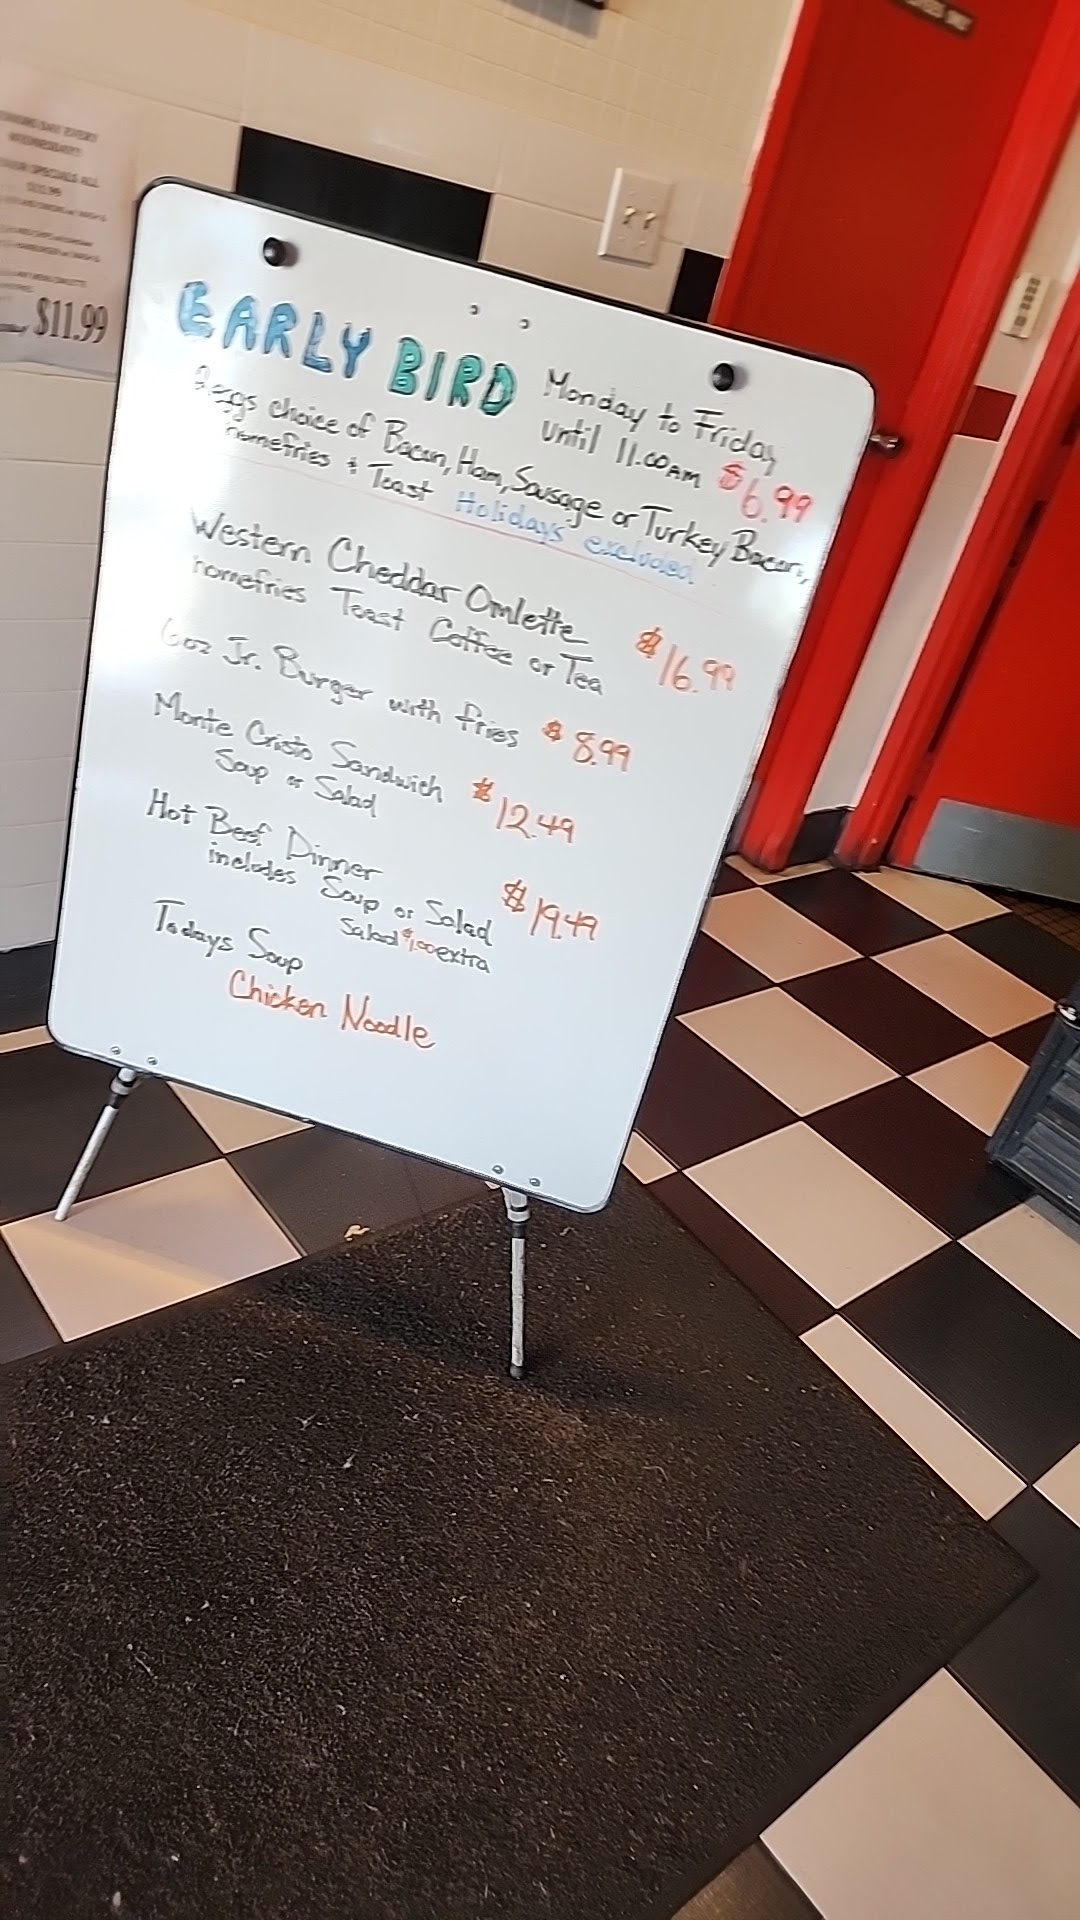 EARLY BIRD Monday to Friday
until 11.00AM $6.99
2 eggs choice of Bacon, Ham, Sausage or Turkey Bacon,
homefries & Toast Holidays excluded
Western Cheddar Omlette $16.99
homefries Toast Coffee or Tea
6oz Jr. Burger with fries $8.99
Monte Cristo Sandwich $12.49
Soup or Salad
Hot Beef Dinner $19.49
includes Soup or Salad
Salad $1.00 extra
Todays Soup
Chicken Noodle
EVERY
WEDNESDAY!
SPECIALS ALL
$11.99
$11.99